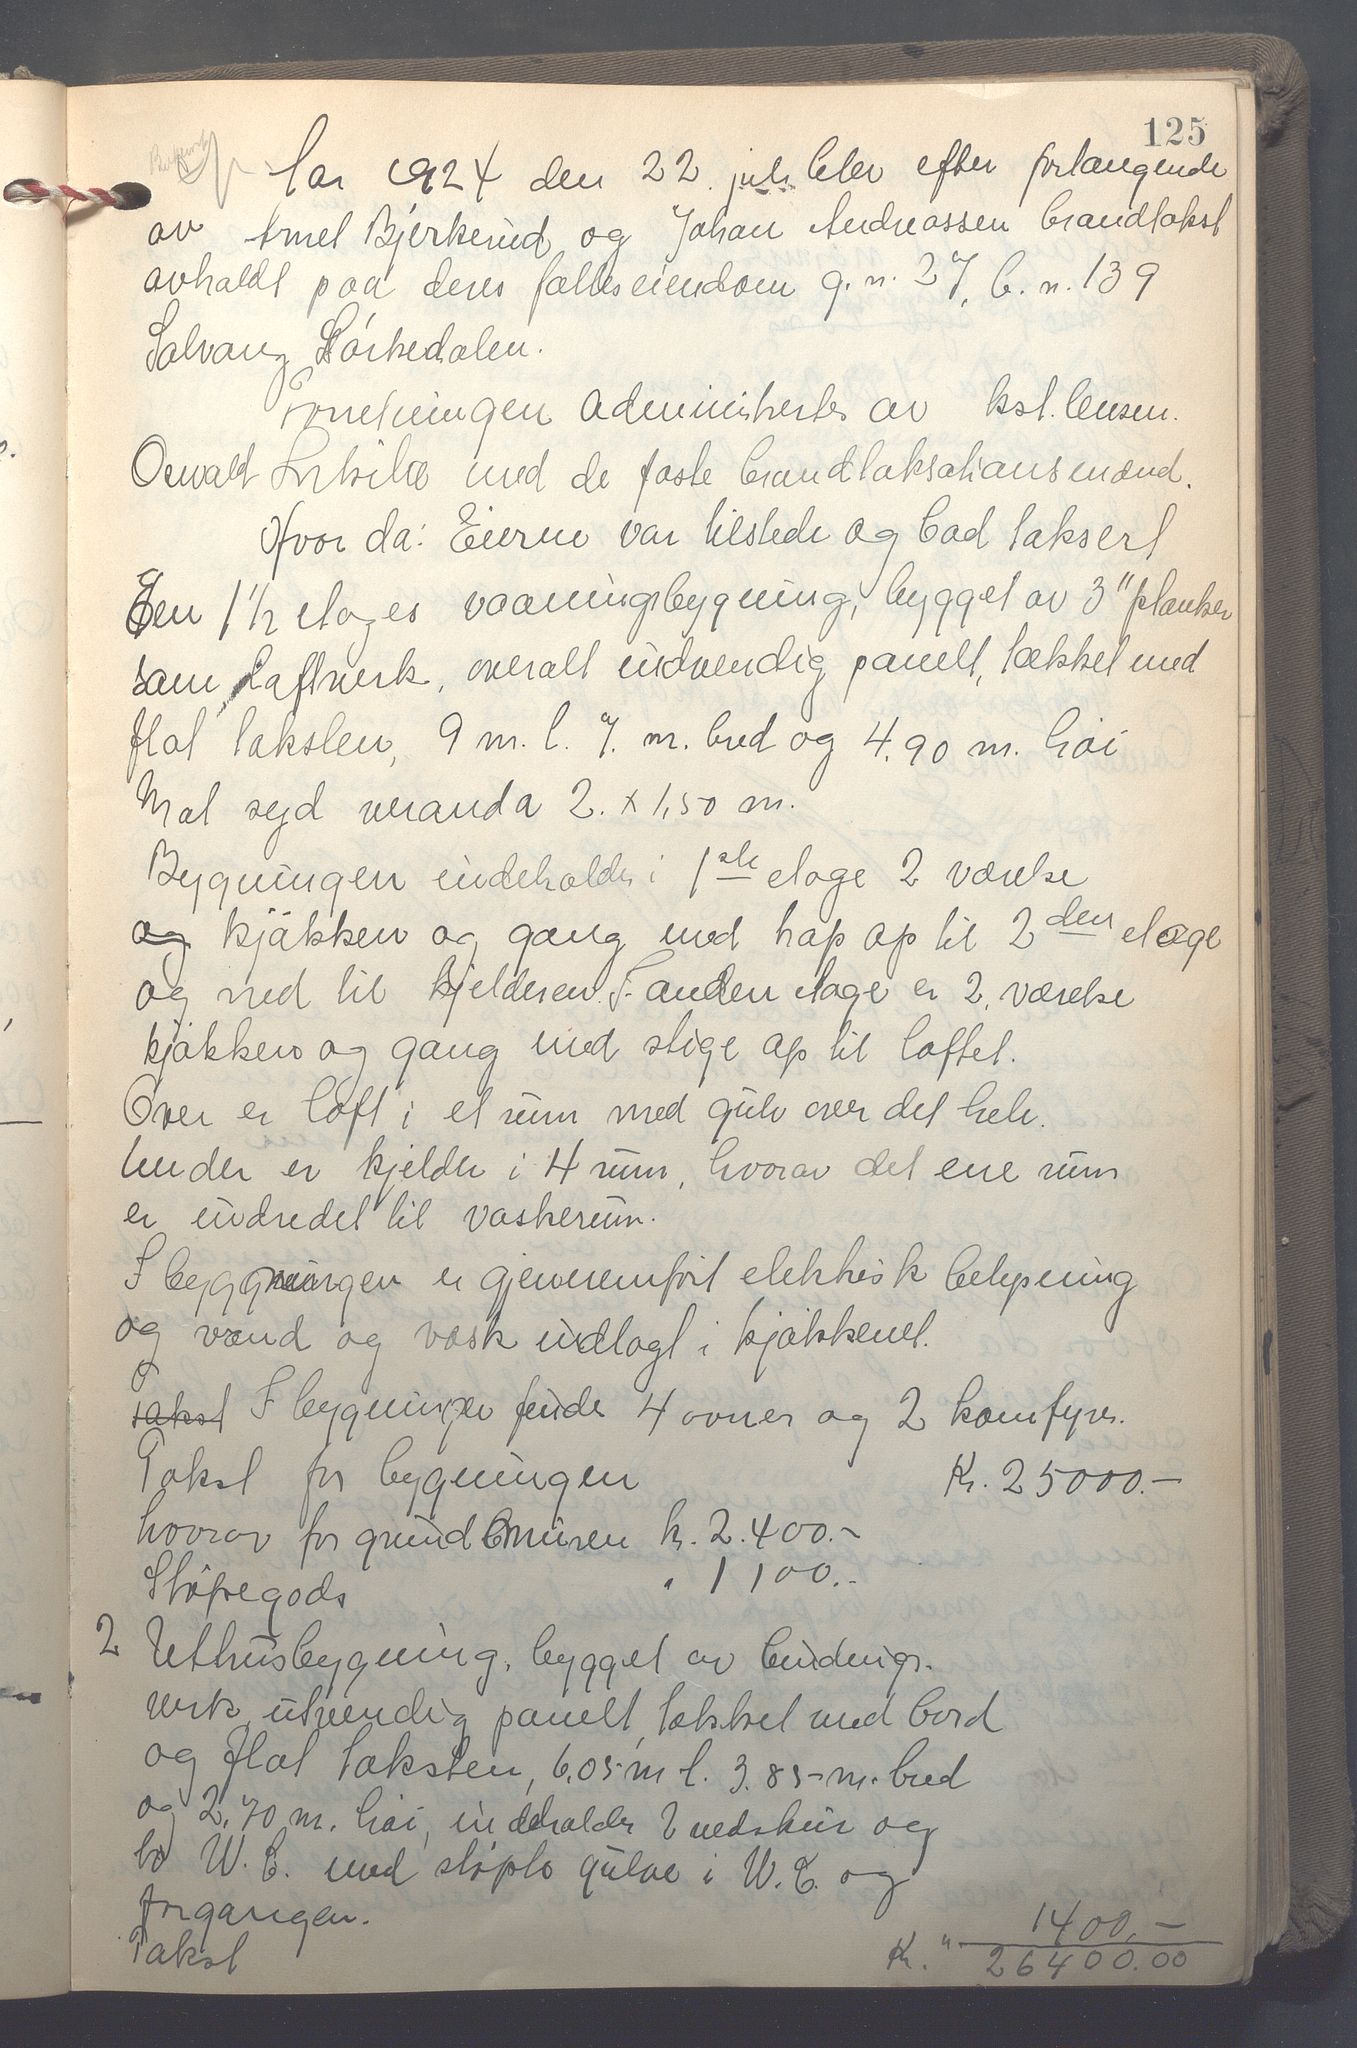 125
Aar 1924 den 22. juli blev efter forlangende
av Arnet Bjerkerud og Johan Andreassen brandtakst
avholdt paa deres fælleseiendom g.n. 27, b.n. 139
Solvang Slørkedalen.
Forretningen administrertes av kst. lensm.
Osvald med de faste brandtaksationsmænd.
Hvor da: Eierne var tilstede og bad taksert
Een 1½ etages vaaningsbygning, bygget av 3" planker
som laftverk, overalt utvendig panelt, tækket med
flat taksten, 9 m. l. 7. m. bred og 4,90 m. høi
Mot syd veranda 2. x 1,50 m.
Bygningen indeholder i 1ste etage 2 værelse
og kjøkken og gang med trap op til 2den etage
og ned til kjelderen. I anden etage er 2, værelse
kjøkken og gang med stige op til loftet.
Over er loft i et rum med gulv over det hele.
Under er kjelder i 4 rum, hvorav det ene rum
er indredet til vaskerum.
I byggningen er gjennemført elektrisk belysning
og vand og vask indlagt i kjøkkenet.
Takst I bygningen findes 4 ovner og 2 komfyrer.
Takst for bygningen Kr. 25000.-
hvorav for grundmuren kr. 2.400.-
Støpegods " 1100.-
2 Uthusbygning, bygget av bindings-
verk, utvendig panelt, tækket med bord
og flat taksten, 6,05 m l. 3.85 m. bred
og 2,70 m. høi, indeholder 2 vedskur og
to W.C. med støpte gulve i W.C. og
forgangen.
Takst " 1400,-
Kr. 26400.00